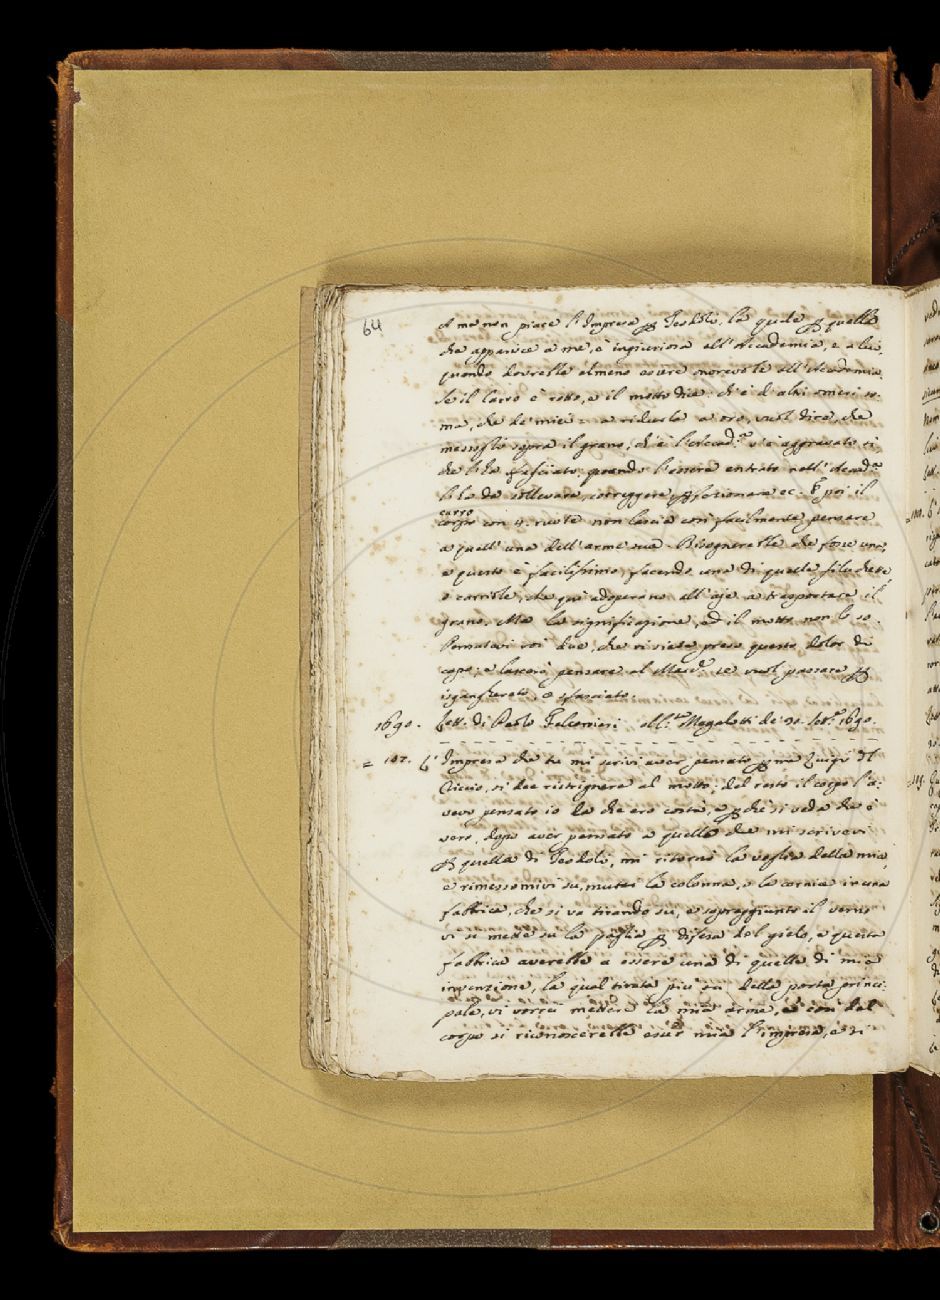 64
A me non piace l'Impresa Teodoli, la quale quello
che apparisce a me, è ingiuriosa all'Accademia, e a lui,
quando dovrebbe almeno essere onorevole all'Accademia.
Se il carro è rotto, e il motto dica: di e d'altri omeri so-
ma, che de' miei: a ridurla a oro, vuol dire, che
messoglio sopra il grano, ch'è l'Accad.ª s'è aggravato si
che l'ha sfasciato, quando l'essere entrato nell'Accad.ª
l'ha da sollevare, correggere, perfezionare ec. poi il
carro
corpo con 4. ruote non lascia così facilmente pensare
a quell'una dell'arme sua. Bisognerebbe che fosse una,
e questo è facilissimo, facendo una di quelle
o carriole, che qui adoperano all'aje a trasportare il
grano. Ma la significazione, ed il motto non lo so.
Pensatevi voi due, che vi siate preso questo dolor di
capo, e lascerò pensare al March.e se vuol passare
isgangherato, o sfasciato.
1690. Lett. di Paolo Falconieri all. Magalotti de' 30. Sett.e 1690.
= 107. L'Impresa che tu mi scrivi aver pensato me Luigi del
Riccio, si dee ristrignere al motto: del resto il corpo l'a-
vevo pensato io da che ero costà, e che si veda che è
vero, dopo aver pensato a quello che mi scrivevi
quella di Teodoli, mi ritornò la voglia della mia,
e rimessomivi su, mutai la colonna, o la cornice in una
fabbrica, che si va tirando su, e sopraggiunto il verno
vi si mette su la paglia difesa dal gielo, e questa
fabbrica averebbe a essere una di quelle di mia
invenzione, la qual tirata più su della porta princi-
pale, vi vorrei mettere la mia arme, e così dal
corpo si riconoscerebbe esser mia l'impresa, e si